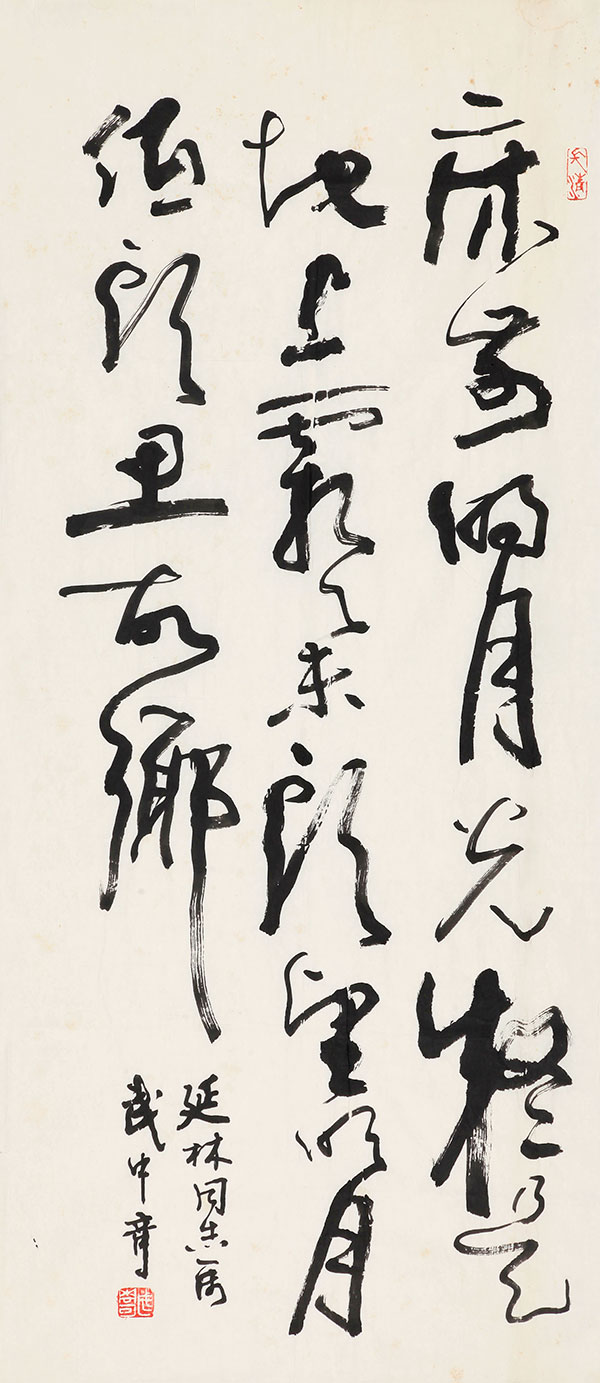 床前明月光疑是
地上霜举頭望明月
低頭思故鄉
延林同志属
武中奇